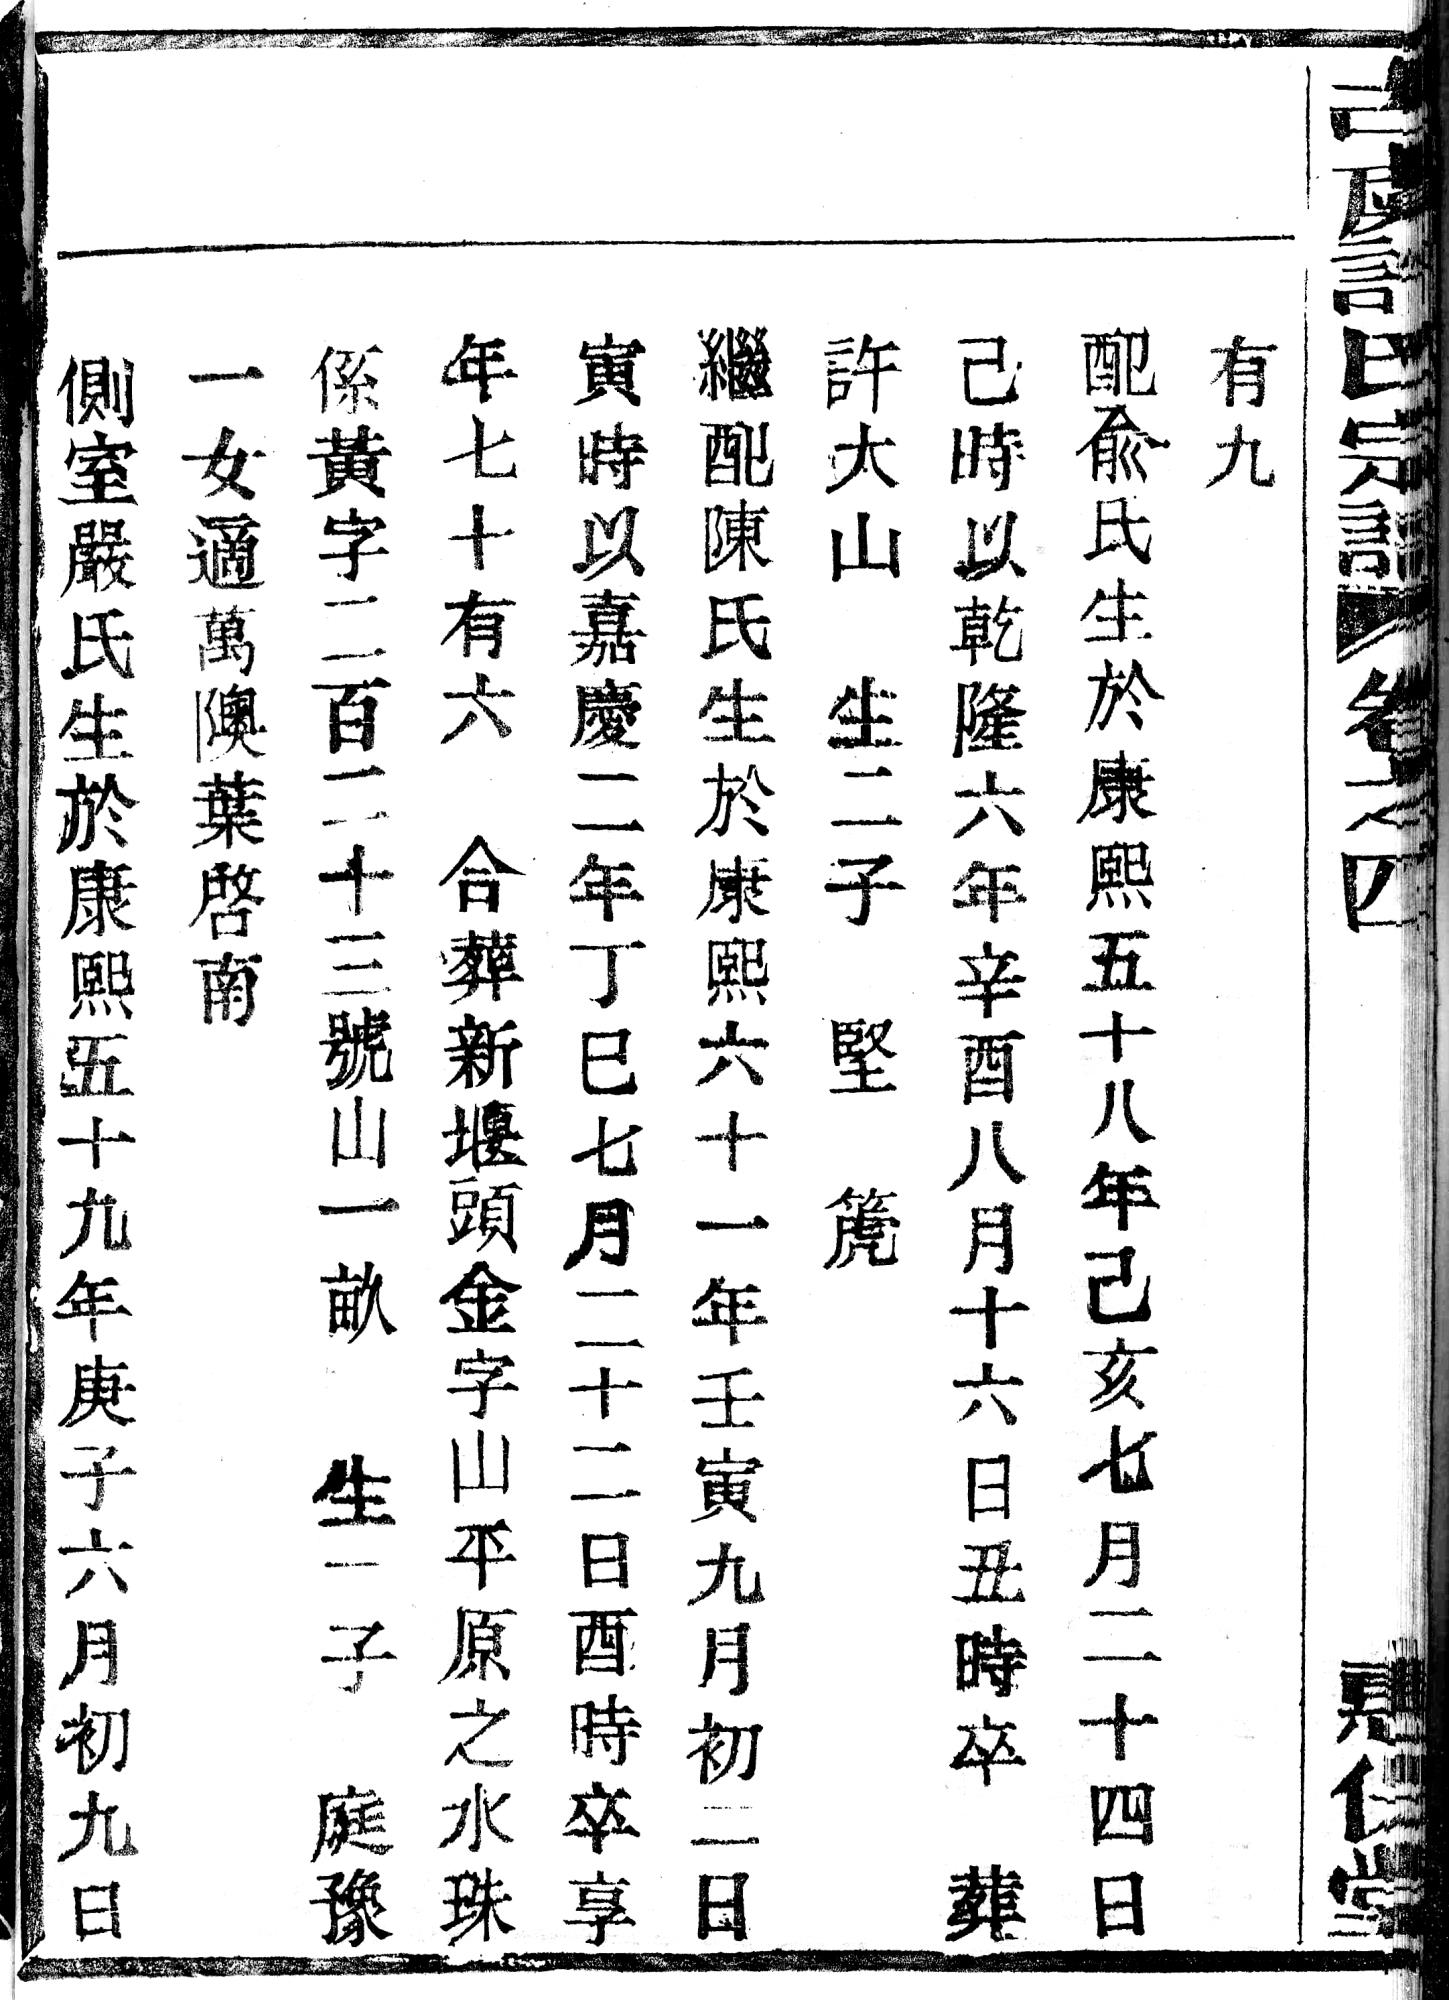 許氏宗譜 卷之四
有九
配俞氏生於康熙五十八年己亥七月二十四日
己時以乾隆六年辛酉八月十六日丑時卒 葬
許大山 生二子 堅 篪
繼配陳氏生於康熙六十一年壬寅九月初二日
寅時以嘉慶二年丁巳七月二十二日酉時卒享
年七十有六 合葬新堰頭金字山平原之水珠
係黃字二百二十三號山一畝 生一子 庭豫
一女適萬隩葉啓南
側室嚴氏生於康熙五十九年庚子六月初九日